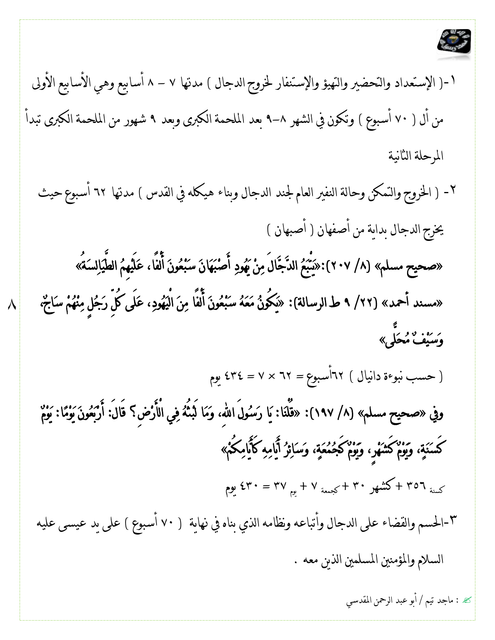 ١-( الإستعداد والتحضير والتهيؤ والإستنفار لخروج الدجال ) مدتها ٧ – ٨ أسابيع وهي الأسابيع الأولى
من أل ( ٧٠ أسبوع ) وتكون في الشهر ٨-٩ بعد الملحمة الكبرى وبعد ٩ شهور من الملحمة الكبرى تبدأ
المرحلة الثانية
٢- ( الخروج والتمكن وحالة النفير العام لجند الدجال وبناء هيكله في القدس ) مدتها ٦٢ أسبوع حيث
يخرج الدجال بداية من أصفهان ( أصبهان )
«صحيح مسلم» (٨/ ٢٠٧): «يَتْبَعُ الدَّجَّالَ مِنْ يَهُودِ أَصْبَهَانَ سَبْعُونَ أَلْفًا، عَلَيْهِمُ الطَّيَالِسَةُ»
«مسند أحمد» (٢٢/ ٩ ط الرسالة): «يَكُونُ مَعَهُ سَبْعُونَ أَلْفًا مِنَ الْيَهُودِ، عَلَى كُلِّ رَجُلٍ مِنْهُمْ سَاجٌ،
٨
وَسَيْفٌ مُحَلًّى»
( حسب نبوءة دانيال ) ٦٢أسبوع = ٦٢ × ٧ = ٤٣٤ يوم
وفي «صحيح مسلم» (٨/ ١٩٧): «قُلْنَا: يَا رَسُولَ اللهِ، وَمَا لَبْثُهُ فِي الْأَرْضِ؟ قَالَ: أَرْبَعُونَ يَوْمًا: يَوْمٌ
كَسَنَةٍ، وَيَوْمٌ كَشَهْرٍ، وَيَوْمٌ كَجُمُعَةٍ، وَسَائِرُ أَيَّامِهِ كَأَيَّامِكُمْ»
كسنة ٣٥٦ + كشهر ٣٠ + كجمعة ٧ + يوم ٣٧ = ٤٣٠ يوم
٣-الحسم والقضاء على الدجال وأتباعه ونظامه الذي بناه في نهاية ( ٧٠ أسبوع ) على يد عيسى عليه
السلام والمؤمنين المسلمين الذين معه .
: ماجد تيم / أبو عبد الرحمن المقدسي